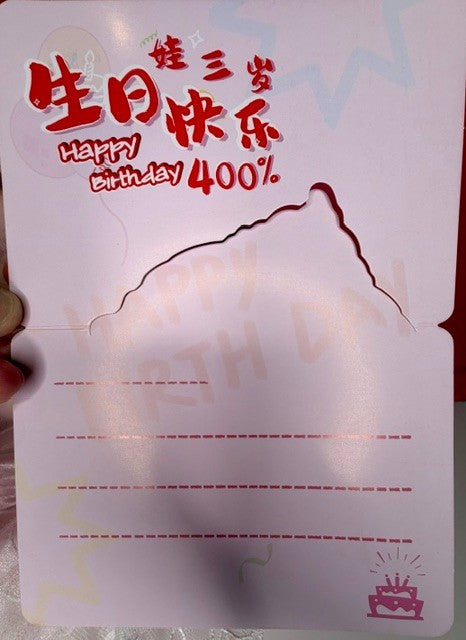 娃三岁
生日快乐
Happy
Birthday 400%
HAPPY
BIRTH DAY